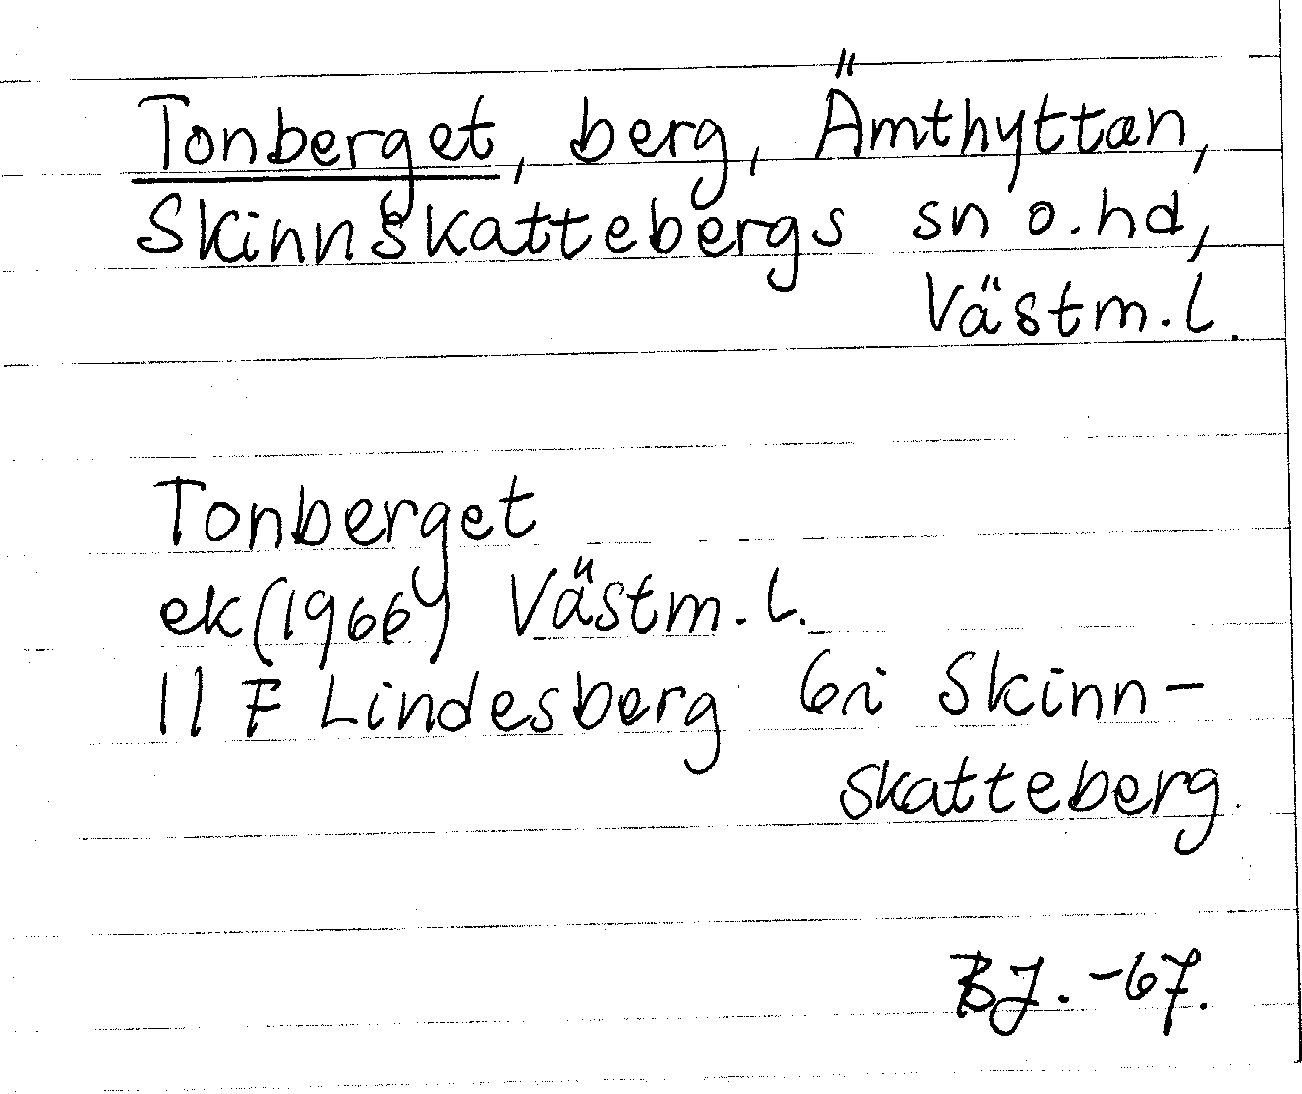 Tonberget, berg, Ämthyttan,
Skinnskattebergs sn o. hd,
Västm. l.
Tonberget
ek (1966) Västm. l.
11 F Lindesberg 6i Skinn-
skatteberg.
BJ. -67.